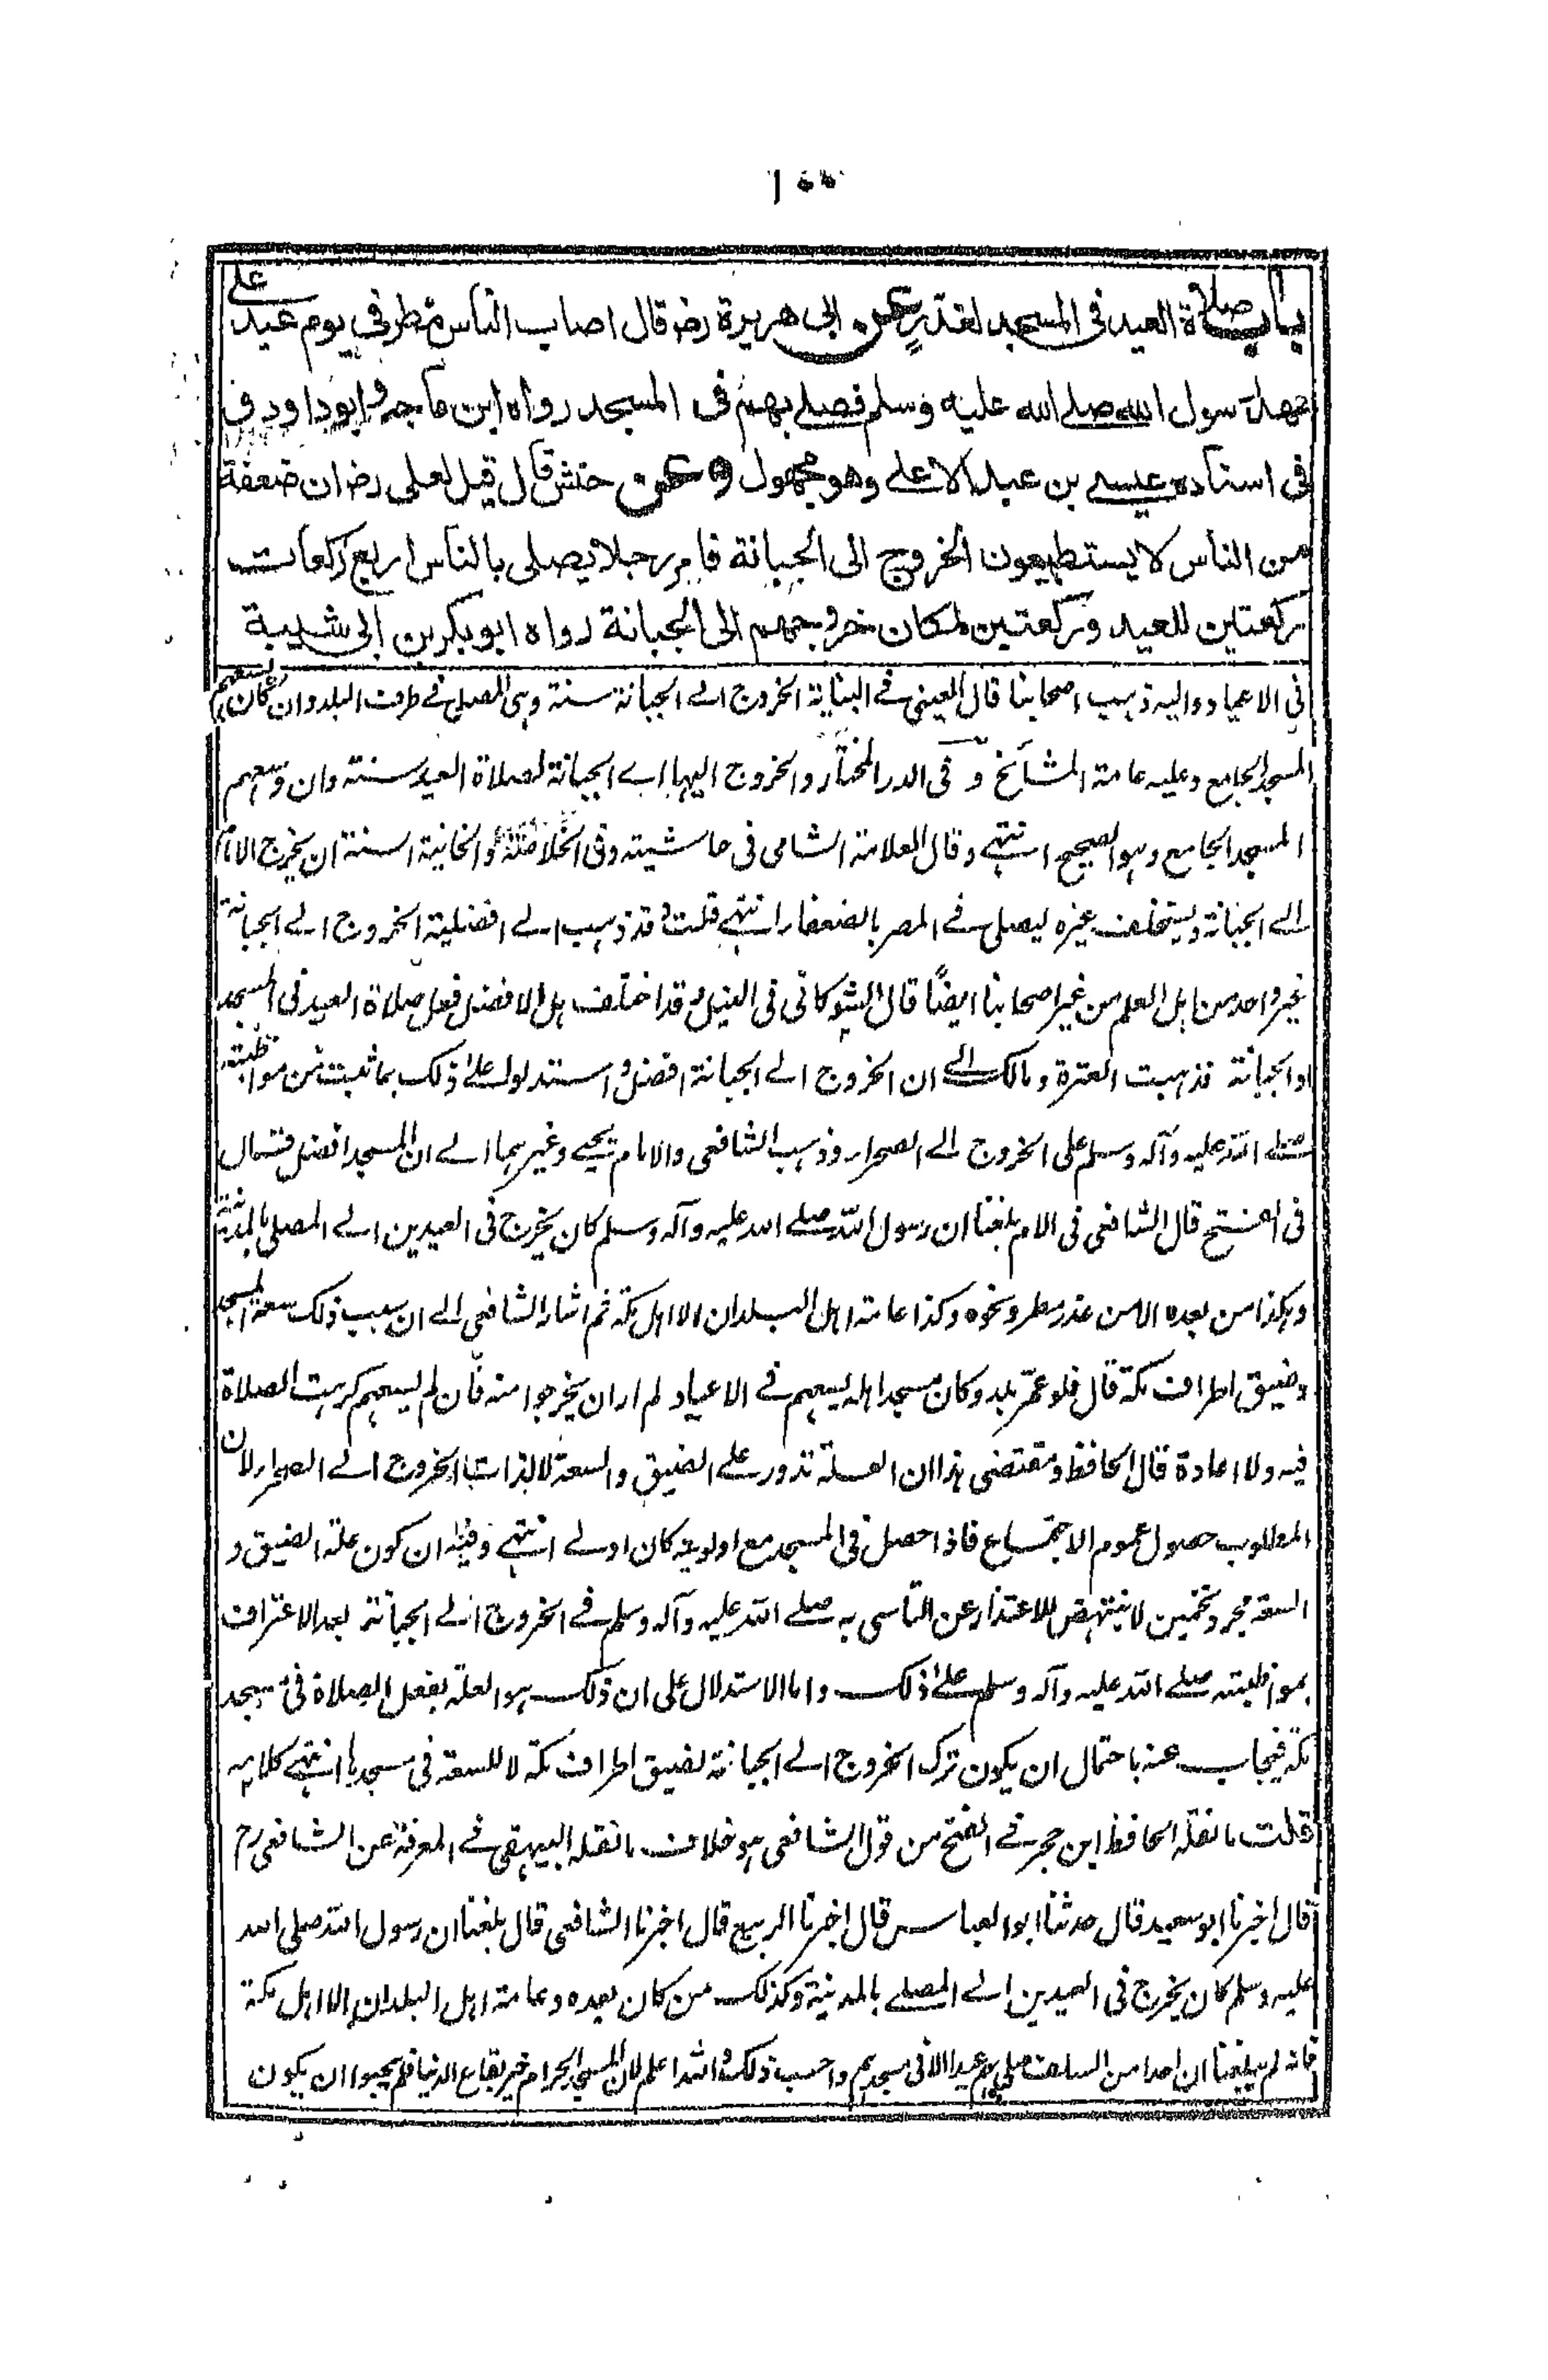 باب صلاة العيد فى المسجد لعذر عن ابى هريرة رض قال اصاب الناس مطر فى يوم عيد على
عهد رسول الله صلى الله عليه وسلم فصلى بهم فى المسجد رواه ابن ماجه وابوداود و
فى اسناده عيسى بن عبد الاعلى وهو مجهول وعن حنش قال قيل لعلى رض ان ضعفة
من الناس لا يستطيعون الخروج الى الجبانة فامر رجلا يصلى بالناس اربع ركعات
ركعتين للعيد وركعتين لمكان خروجهم الى الجبانة رواه ابو بكر بن ابى شيبة
فى الاعياد واليه ذهب اصحابنا قال العينى فى البناية الخروج الى الجبانة سنة وهى المصلى فى طرف البلد وان كان يسعهم
المسجد الجامع وعليه عامة المشائخ و فى الدر المختار والخروج اليها اى الجبانة لصلاة العيد سنة وان وسعهم
المسجد الجامع وهو الصحيح انتهى وقال العلامة الشامى فى حاشيته وفى الخلاصة والخانية السنة ان يخرج الامام
الى الجبانة ويستخلف غيره ليصلى فى المصر بالضعفاء انتهى قلت وقد ذهب الى افضلية الخروج الى الجبانة
غير واحد من اهل العلم من غير اصحابنا ايضًا قال الشوكانى فى النيل وقد اختلف هل الافضل فعل صلاة العيد فى المسجد
او الجبانة فذهبت العترة ومالك الى ان الخروج الى الجبانة افضل واستدلوا على ذلك بما ثبت من مواظبته
صلى الله عليه وآله وسلم على الخروج الى الصحراء وذهب الشافعى والامام يحيى وغيرهما الى ان المسجد افضل قال
فى الفتح قال الشافعى فى الام بلغنا ان رسول الله صلى الله عليه وآله وسلم كان يخرج فى العيدين الى المصلى بالمدينة
وهكذا من بعده الا من عذر مطر ونحوه وكذا عامة اهل البلدان الا اهل مكة ثم اشار الشافعى الى ان سبب ذلك سعة المسجد
وضيق اطراف مكة قال فلو عمر بلد وكان مسجد اهله يسعهم فى الاعياد لم ار ان يخرجوا منه فان لم يسعهم كرهت الصلاة
فيه ولا اعادة قال الحافظ ومقتضى هذا ان العلة تدور على الضيق والسعة لا لذات الخروج الى الصحراء لان
المطلوب حصول عموم الاجتماع فاذا حصل فى المسجد مع اولويته كان اولى انتهى وفيه ان كون علة الضيق و
السعة مجرد تخمين لا ينتهض للاعتذار عن التاسى به صلى الله عليه وآله وسلم فى الخروج الى الجبانة بعد الاعتراف
بمواظبته صلى الله عليه وآله وسلم على ذلك واما الاستدلال على ان ذلك هو العلة بفعل الصلاة فى مسجد
مكة فيجاب عنه باحتمال ان يكون ترك الخروج الى الجبانة لضيق اطراف مكة لا للسعة فى مسجدها انتهى كلامه
قلت ما نقله الحافظ ابن حجر فى الفتح من قول الشافعى هو خلاف ما نقله البيهقى فى المعرفة عن الشافعى رح
قال اخبرنا ابو سعيد قال حدثنا ابو العباس قال اخبرنا الربيع قال اخبرنا الشافعى قال بلغنا ان رسول الله صلى الله
عليه وسلم كان يخرج فى العيدين الى المصلى بالمدينة وكذلك من كان بعده وعامة اهل البلدان الا اهل مكة
فانه لم يبلغنا ان احدا من السلف صلى بهم عيدا الا فى مسجدهم واحسب ذلك والله اعلم لان المسجد الحرام خير بقاع الدنيا فلم يحبوا ان يكون